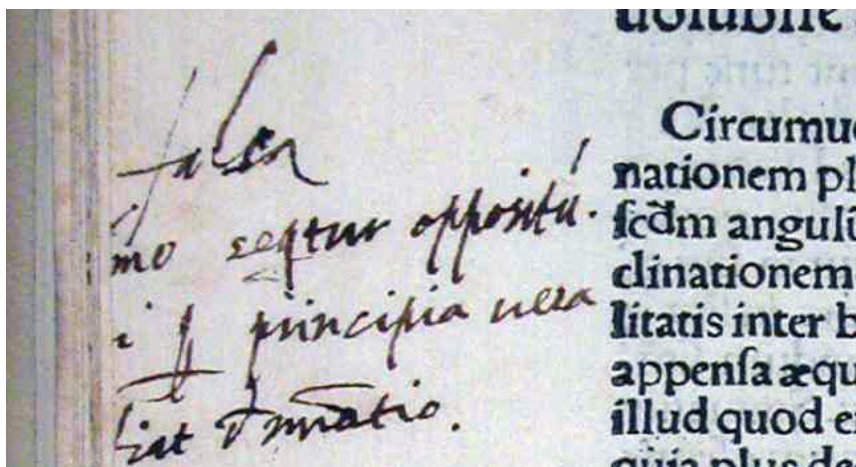 falsa
mo seqtur oppositũ.
i principia uera
fiat
uolubile
Circumuo
nationem pl
ſcdm angulũ
clinationem
litatis inter b
appenſa æqu
illud quod e
quia plus de